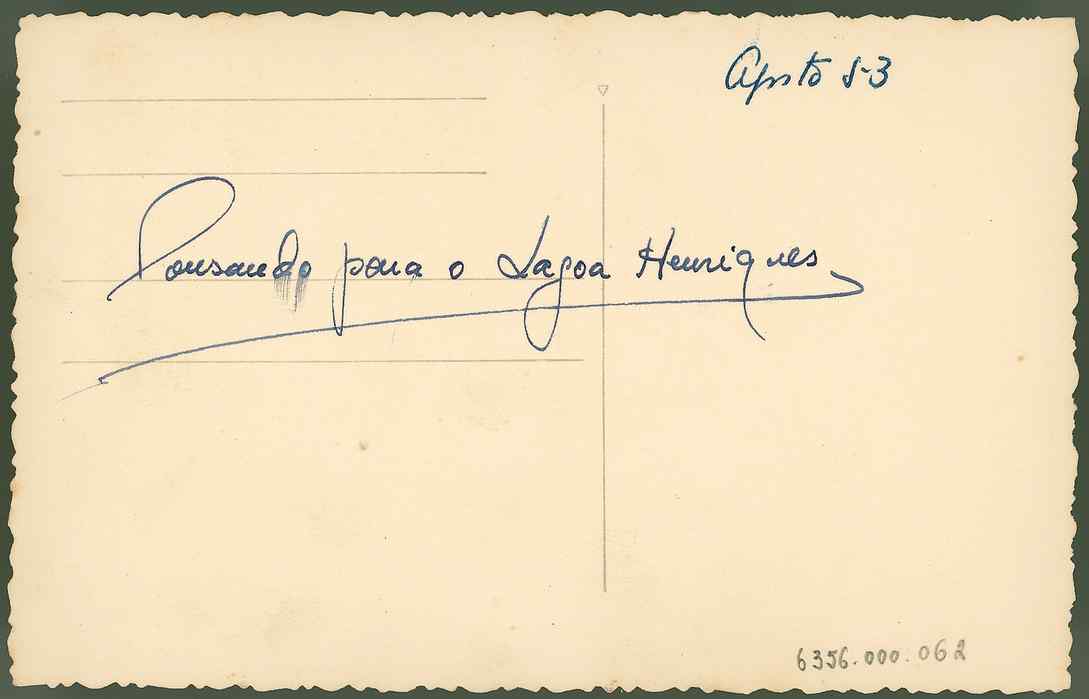 Agosto 53
Pousando para o Lagoa Henriques
6356.000.062